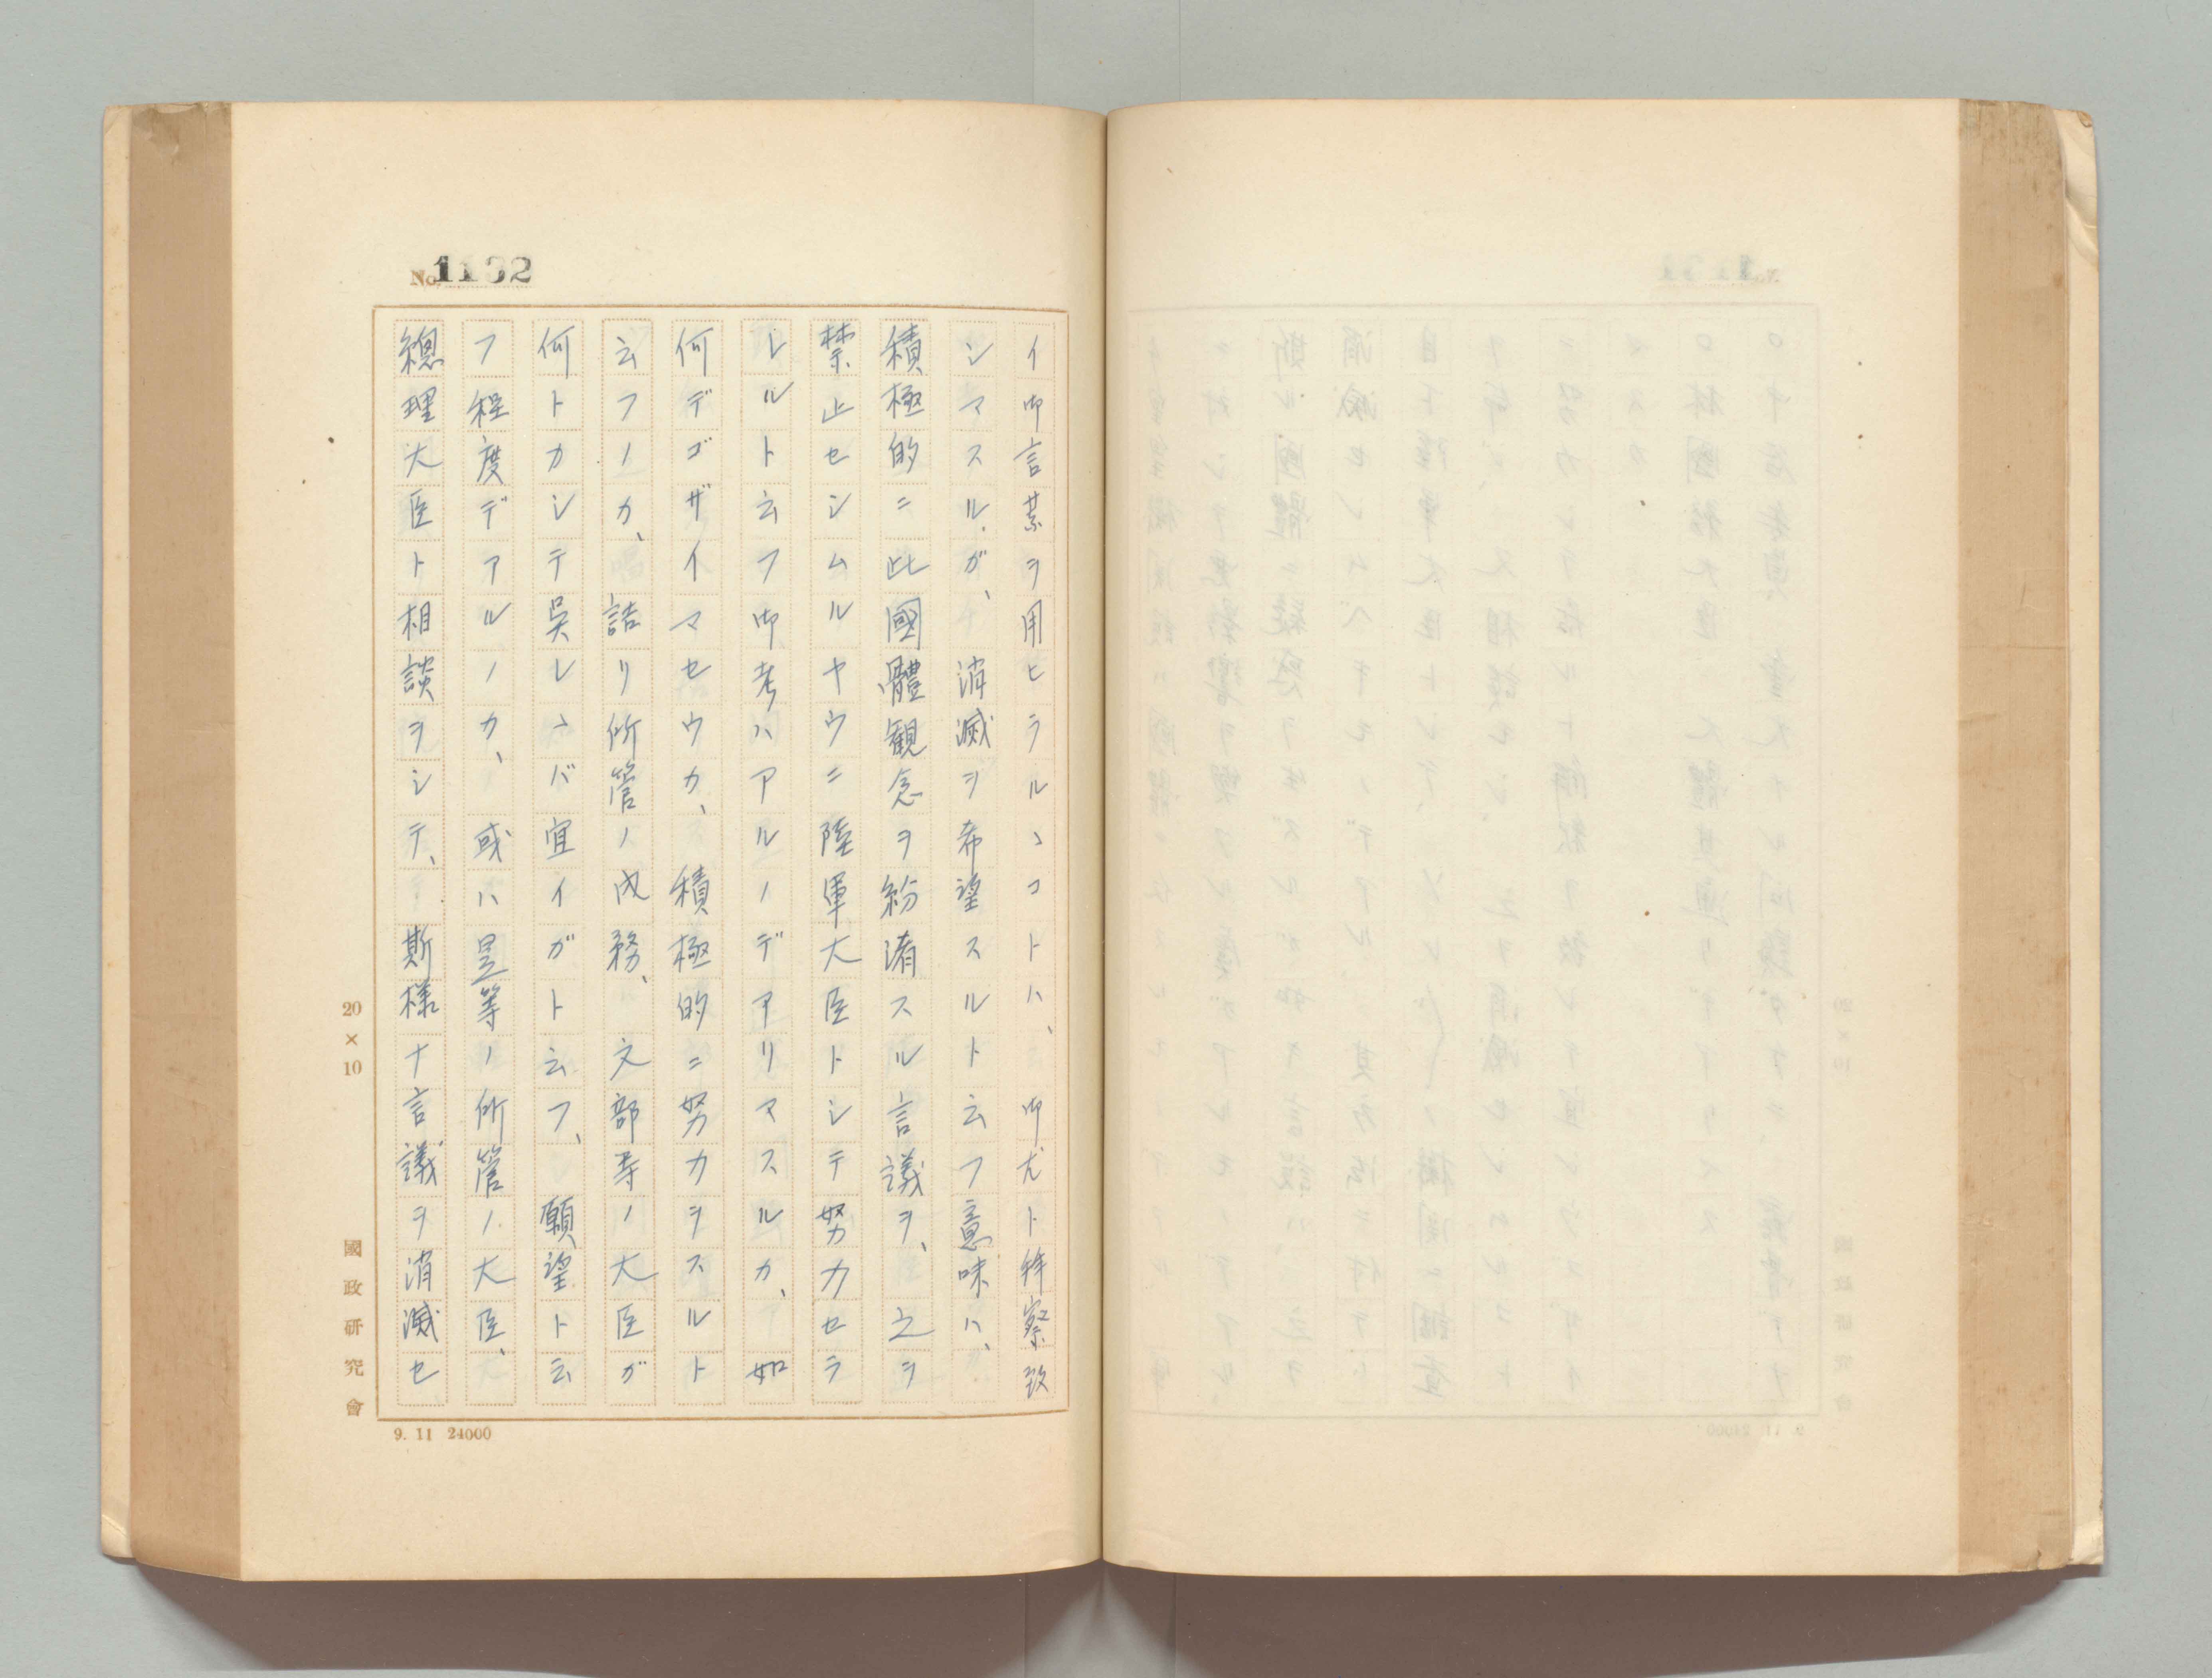 No. 1132
イ御言葉ヲ用ヒラルヽコトハ、御尤ト拝察致
シマスルガ、消滅ヲ希望スルト云フ意味ハ、
積極的ニ此國體観念ヲ紛淆スル言議ヲ、之ヲ
禁止セシムルヤウニ陸軍大臣トシテ努力セラ
レルト云フ御考ハアルノデアリマスルカ、如
何デゴザイマセウカ、積極的ニ努力ヲスルト
云フノカ、詰リ所管ノ内務、文部等ノ大臣ガ
何トカシテ呉レヽバ宜イガト云フ、願望ト云
フ程度デアルノカ、或ハ是等ノ所管ノ大臣、
總理大臣ト相談ヲシテ、斯様ナ言議ヲ消滅セ
20×10
國政研究會
9. 11 24000